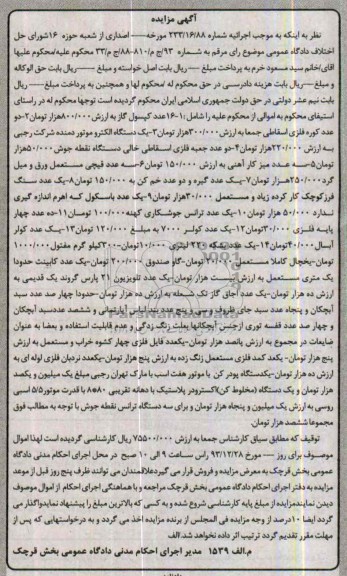 آگهی مزایده
نظر به اینکه به موجب اجرائیه شماره ۲۳۳/۱۶/۸۸ مورخه---- اصداری از شعبه حوزه ۱۶شورای حل
اختلاف دادگاه عمومی موضوع رای مرقم به شماره ۹۳/ج م/۸۱۰-۸۸/ج م/۳۳ محکوم علیه/محکوم علیها
آقای/خانم سید مسعود خرم به پرداخت مبلغ --- ریال بابت اصل خواسته و مبلغ ---- ریال بابت حق الوکاله
و مبلغ --- ریال بابت هزینه دادرسی در حق محکوم له /محکوم لها و همچنین به پرداخت مبلغ ---- ریال
بابت نیم عشر دولتی در حق دولت جمهوری اسلامی ایران محکوم گردیده است توجها محکوم له در راستای
استیفای محکوم به اموالی از محکوم علیه را شامل :۱-۱۶عدد کپسول گاز به ارزش ۸۰۰/۰۰۰هزار تومان ۲-دو
عدد کوره فلزی اسقاطی جمعا به ارزش ۳۰۰/۰۰۰هزار تومان ۳-یک دستگاه الکترو موتور دمنده شرکت رجبی
به ارزش ۲۲۰/۰۰۰هزار تومان ۴-دو عدد جعبه فلزی اسقاطی خالی دستگاه نقطه جوش ۵۰/۰۰۰هزار
تومان ۵-سه عدد میز کار آهنی به ارزش ۱۵۰/۰۰۰ تومان ۶-سه عدد قیچی مستعمل ورق و میل
گرد ۲۵۰/۰۰۰هزار تومان ۷-یک عدد گیره و دو عدد خم کن به ۱۵۰/۰۰۰ تومان ۸-یک عدد سنگ
فرزکوچک کار کرده زیاد و مستعمل ۳۰/۰۰۰هزار تومان ۹-یک عدد باسکول که اهرم اندازه گیری
ندارد ۵۰/۰۰۰ هزار تومان ۱۰-یک عدد ترانس جوشکاری کهنه ۱۰۰/۰۰۰ تومان ۱۱-ده عدد چهار
پایه فلزی ۳۰/۰۰۰تومان ۱۲-یک عدد کولر ۷۰۰۰ به مبلغ ۱۲۰/۰۰۰ تومان ۱۳-یک عدد کولر
آبسال ۴۰/۰۰۰تومان ۱۴-یک عدد بشکه ۲۲۰ لیتری ۱۰/۰۰۰تومان-۳۰۰کیلو گرم مفتول ۱۰۰۰/۰۰۰
تومان-یخچال کاملا مستعمل ۲۰/۰۰۰ تومان-گاو صندوق ۲۰۰/۰۰۰ تومان-یک عدد کابینت حدودا
یک متری مستعمل به ارزش بیست هزار تومان-یک عدد تلویزیون ۲۱ پارس گروند یک قدیمی به
ارزش ده هزار تومان-یک عدد اجاق گاز تک شعله به ارزش ده هزار تومان-حدودا چهار صد عدد سبد
آبچکان و پنجاه عدد سبد جای ظروف و سی و پنج عدد بند لباس آپارتمانی و ششصد عددسبد آبچکان
و چهار صد عدد قفسه توری ازجنس آبچکانها بعلت زنگ زدگی و عدم قابلیت استفاده و بعضا به عنوان
ضایعات در مجموع به ارزش پانصد هزار تومان-یکعدد فایل فلزی چهار کشوه خراب و مستعمل به ارزش
پنج هزار تومان- یکعد کمد فلزی مستعمل زنگ زده به ارزش پنج هزار تومان-یکعدد نردبان فلزی لوله ای به
ارزش ده هزار تومان-یکدستگاه پودر کن با موتور هفت اسب با مارک تهران رجبی مبلغ یک میلیون و یکصد
هزار تومان و یک دستگاه (مخلوط کن)اکسترودر پلاستیک با دهانه تقریبی ۸۰*۸ با قدرت موتور ۵/۵ اسبی
روسی به ارزش یک میلیون و پنجاه هزار تومان و برای سه دستگاه ترانس نقطه جوش با توجه به مطالب فوق
مجموعا ششصد هزار تومان.
توقیف که مطابق سیاق کارشناس جمعا به ارزش ۷۵۵۰۰/۰۰۰ ریال کارشناسی گردیده است لهذا اموال
موصوف برای روز --- مورخ ۹۳/۱۲/۲۸ راس ساعت ۹ الی ۱۰ صبح در محل اجرای احکام مدنی دادگاه
عمومی بخش قرچک به معرض مزایده و فروش قرار می گیردعلاقمندان می توانند ظرف پنج روز قبل از موعد
مزایده به دفتر اجرای احکام دادگاه عمومی بخش قرچک مراجعه و با هماهنگی اجرای احکام از اموال موصوف
دیدن نمایندمزایده از مبلغ پایه کارشناسی شروع شده و به کسی که بالاترین مبلغ را پیشنهاد نمایدواگذار می
گردد ایضا ۱۰درصد از وجه مزایده فی المجلس از برنده مزایده اخذ می گردد و به درخواستهایی که پس از
مهلت مقرر تقدیم گردد ترتیب اثر داده نخواهد شد.الف
م.الف ۱۵۳۹ مدیر اجرای احکام مدنی دادگاه عمومی بخش قرچک